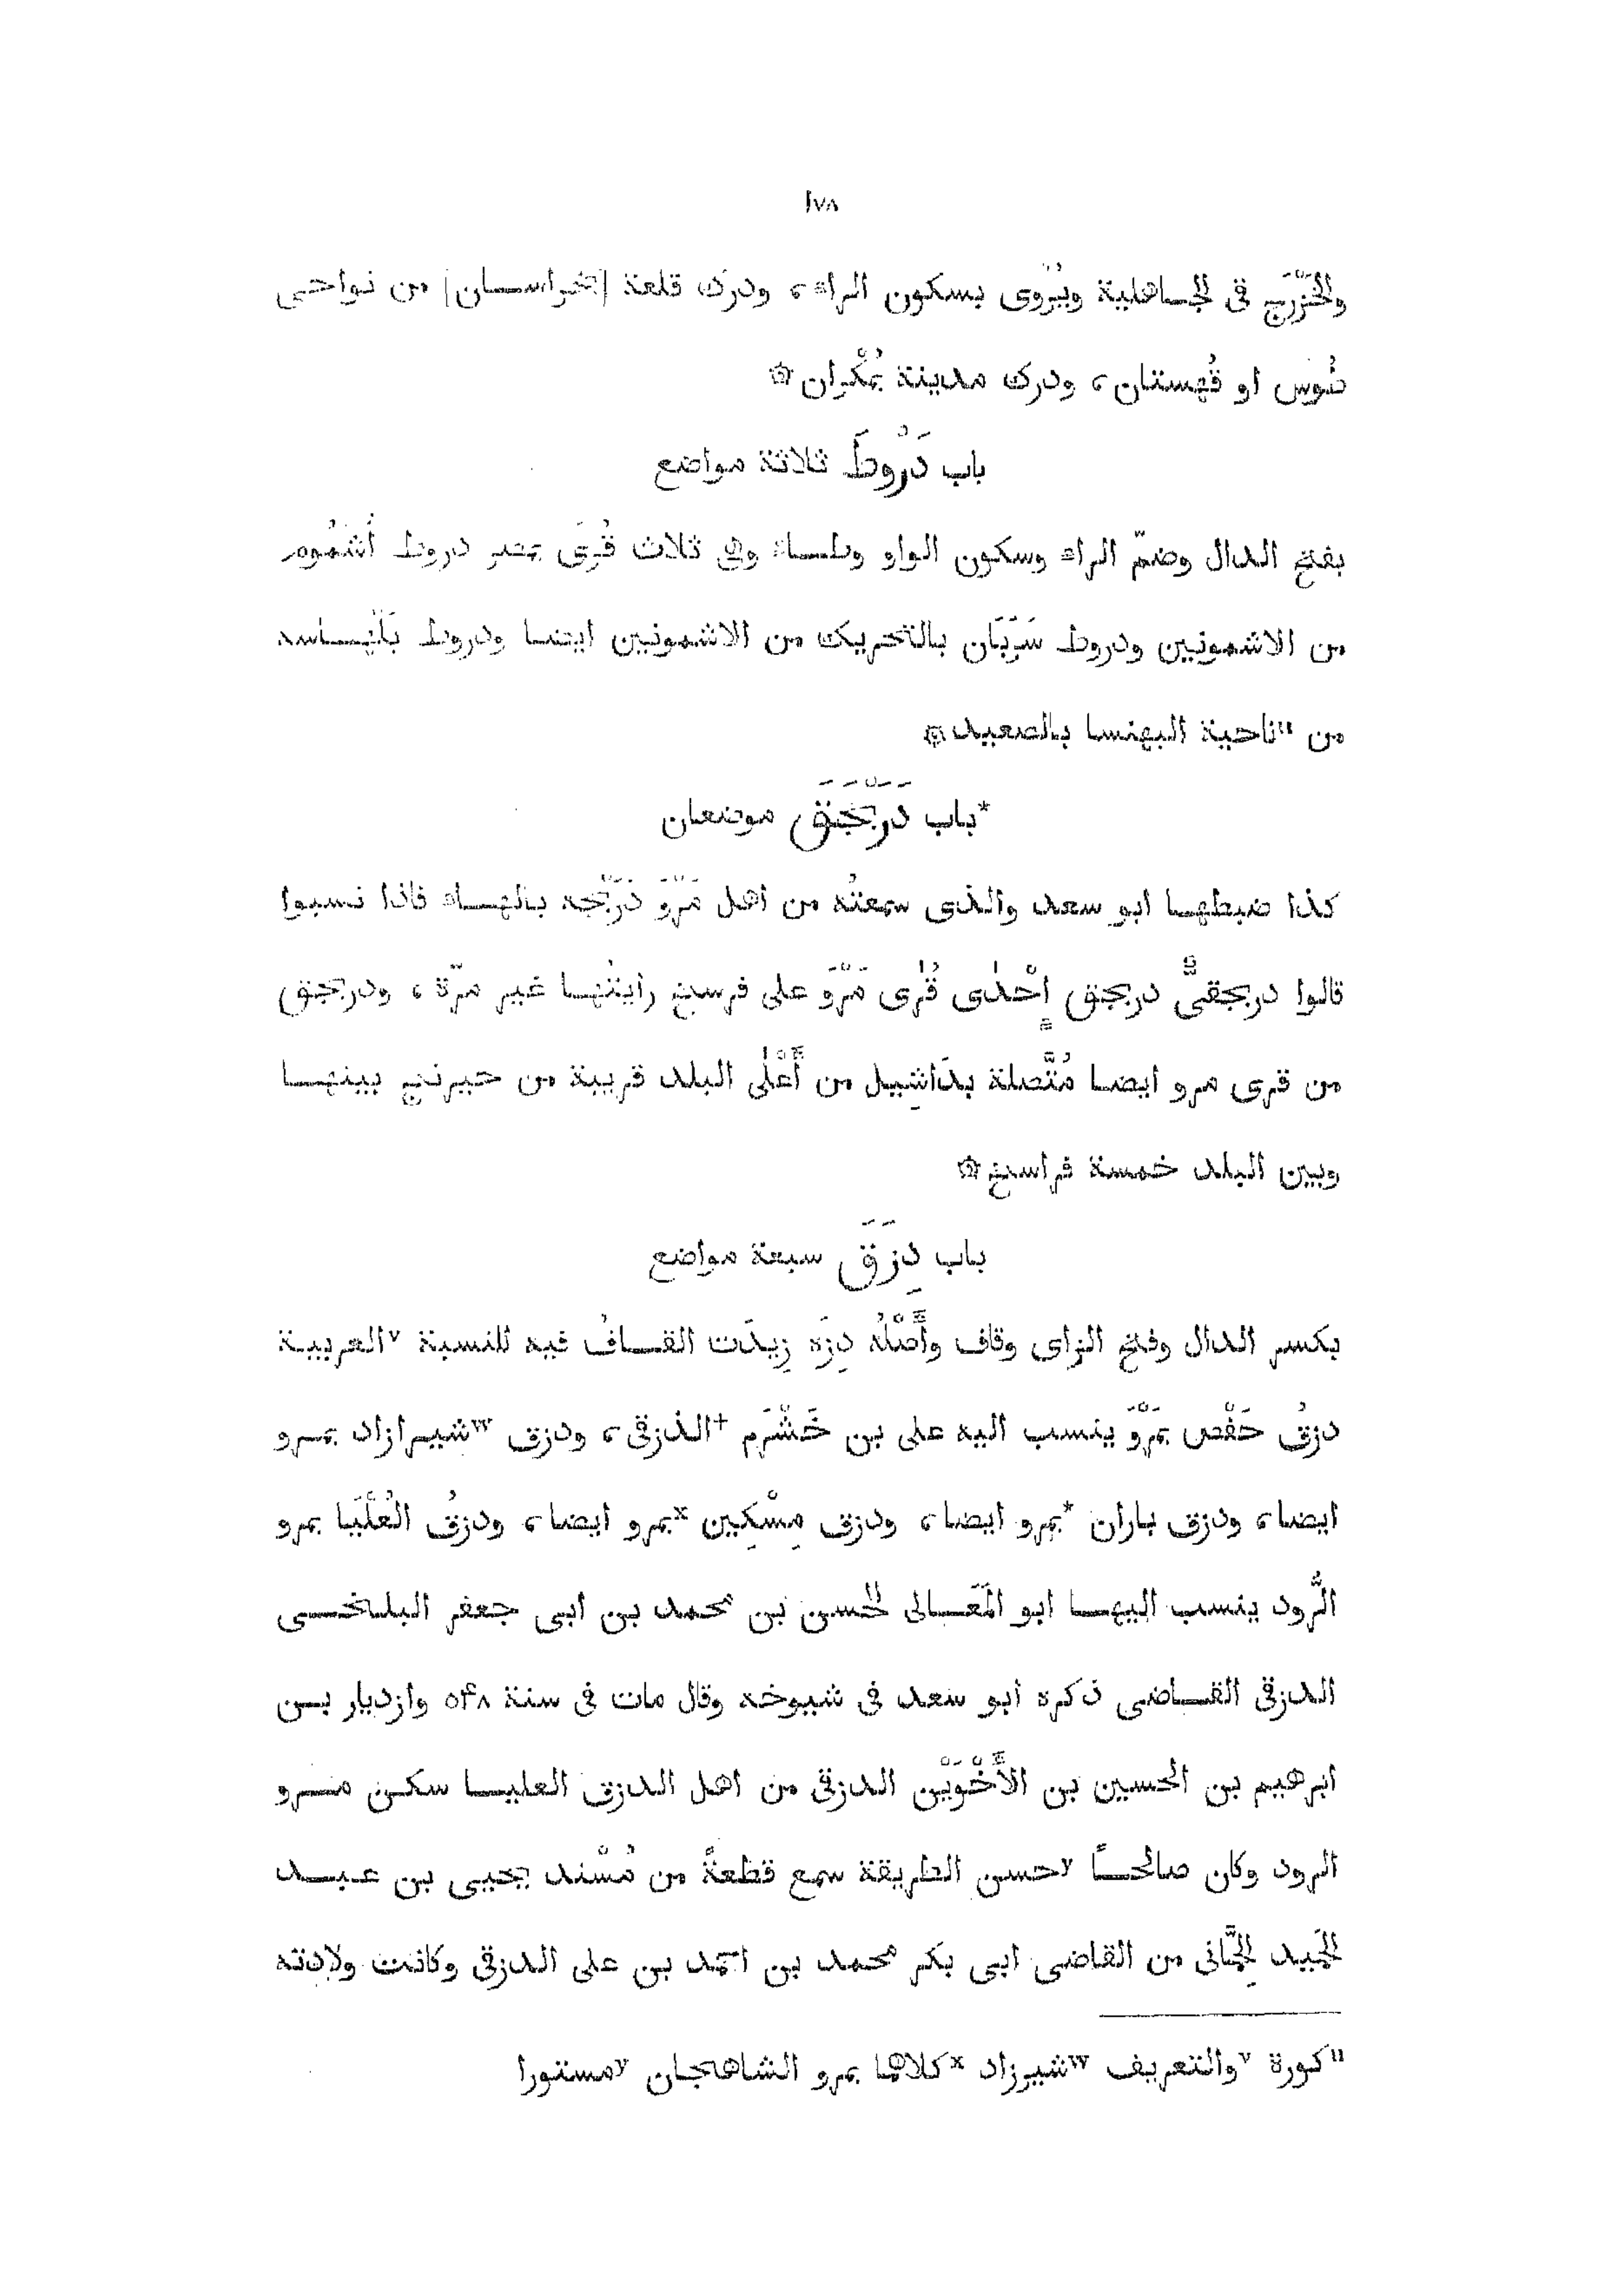 ١٧٨
والخَزْرَج فى الجـاهلية ويُرْوى بسكون الراء، ودرك قلعة [بخراسـان] من نواحى
طُوس او قُهستان، ودرك مدينة بمُكْران ۞
باب دَرُوطَ ثلاثة مواضع
بفتح الدال وضمّ الراء وسكون الواو وطـاء وهى ثلاث قُرَى بمصر دروط أُشْمُوم
من الاشمونين ودروط سَرَبَان بالتحريك من الاشمونين ايضا ودروط بَلْهـاسه
من ᵘناحية البهنسا بالصعيد ۞
*باب دَرَيْجَنَق موضعان
كذا ضبطهـا ابو سعد والذى سمعتُه من اهل مَرْوَ دَرَيْجَه بالهـاء فاذا نسبوا
قالوا دريجقىٌّ دريجنق إِحْدَى قُرى مَرْوَ على فرسخ رايتُهـا غير مرّة، ودريجنق
من قرى مرو ايضـا مُتَّصلة بدَاشِيل من أَعْلَى البلد قريبة من حيرنج بينهـا
وبين البلد خمسة فراسخ ۞
باب دِزَقَ سبعة مواضع
بكسر الدال وفتح الزاى وقاف وأَصْلُه دِزَه زِيدَت القـافُ فيه للنسبة ᵛالعربيـة
دزقُ حَفْص بمَرْوَ ينسب اليه على بن خَشْرَم +الدزقى، ودزق ʷشيـرازاد بمـرو
ايضا، ودزق باران *بمرو ايضا، ودزق مِسْكِين ˣبمرو ايضا، ودزقُ العُلْيَا بمرو
الرُّود ينسب اليهـا ابو المَعَـالى الحسن بن محمد بن ابى جعفر البلـخـى
الدزقى القـاضى ذكره ابو سعد فى شيوخه وقال مات فى سنة ٥۴٨ وازديار بـن
ابرهيم بن الحسين بن الأَخْوَيْن الدزقى من اهل الدزق العليـا سكـن مـرو
الرود وكان صالحـًا ʸحسن الطريقة سمع قطعةً من مُسْند يحيى بن عـبـد
الحَميد الحِمَّانى من القاضى ابى بكر محمد بن احمد بن على الدزقى وكانت ولادته
ᵘكورة ᵛوالتعريف ʷشيرزاد ˣكلاهما بمرو الشاهجان ʸمستورا